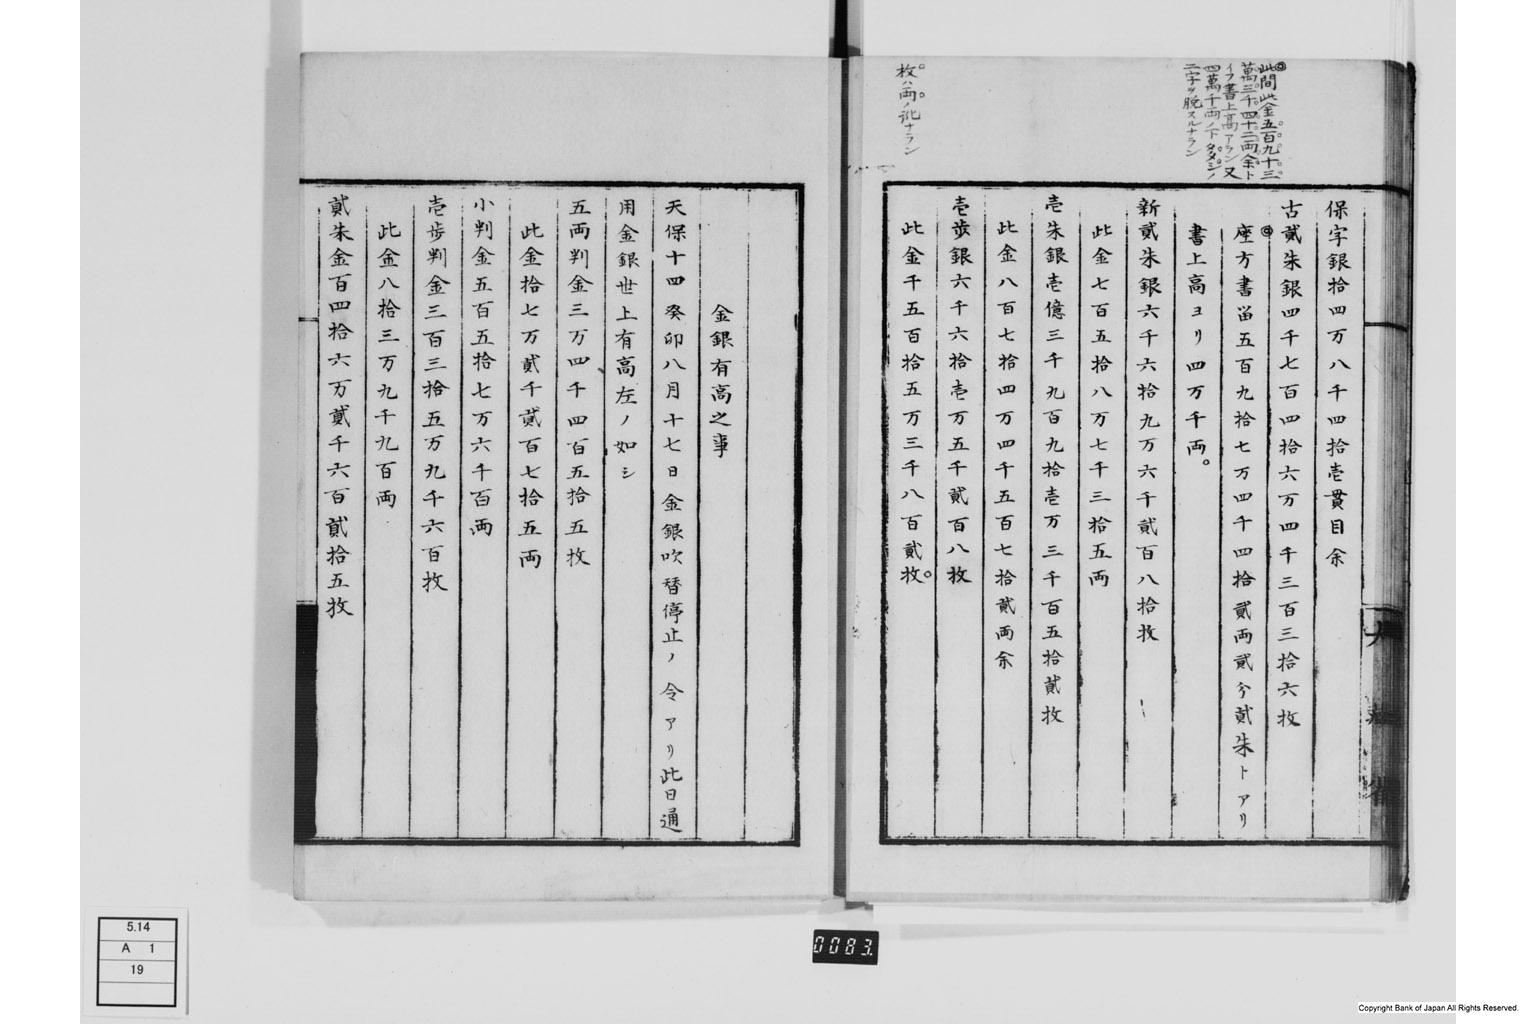 ◎此間此金五百九十三
萬三千四十二両余ト
イフ書上高アラン又
四萬千両ノ下タヾシノ
二字ヲ脱スルナラン
枚ハ両ノ訛ナラン
保字銀拾四万八千四拾壱貫目余
古貳朱銀四千七百四拾六万四千三百三拾六枚
◎座方書留五百九拾七万四千四拾貳両貳分貳朱トアリ
書上高ヨリ四万千両。
新貳朱銀六千六拾九万六千貳百八拾枚
此金七百五拾八万七千三拾五両
壱朱銀壱億三千九百九拾壱万三千百五拾貳枚
此金八百七拾四万四千五百七拾貳両余
壱歩銀六千六拾壱万五千貳百八枚
此金千五百拾五万三千八百貳枚。
金銀有高之事
天保十四癸卯八月十七日金銀吹替停止ノ令アリ此日通
用金銀世上有高左ノ如シ
五両判金三万四千四百五拾五枚
此金拾七万貳千貳百七拾五両
小判金五百五拾七万六千百両
壱歩判金三百三拾五万九千六百枚
此金八拾三万九千九百両
貳朱金百四拾六万貳千六百貳拾五枚
5.14
A 1
19
0083.
Copyright Bank of Japan All Rights Reserved.